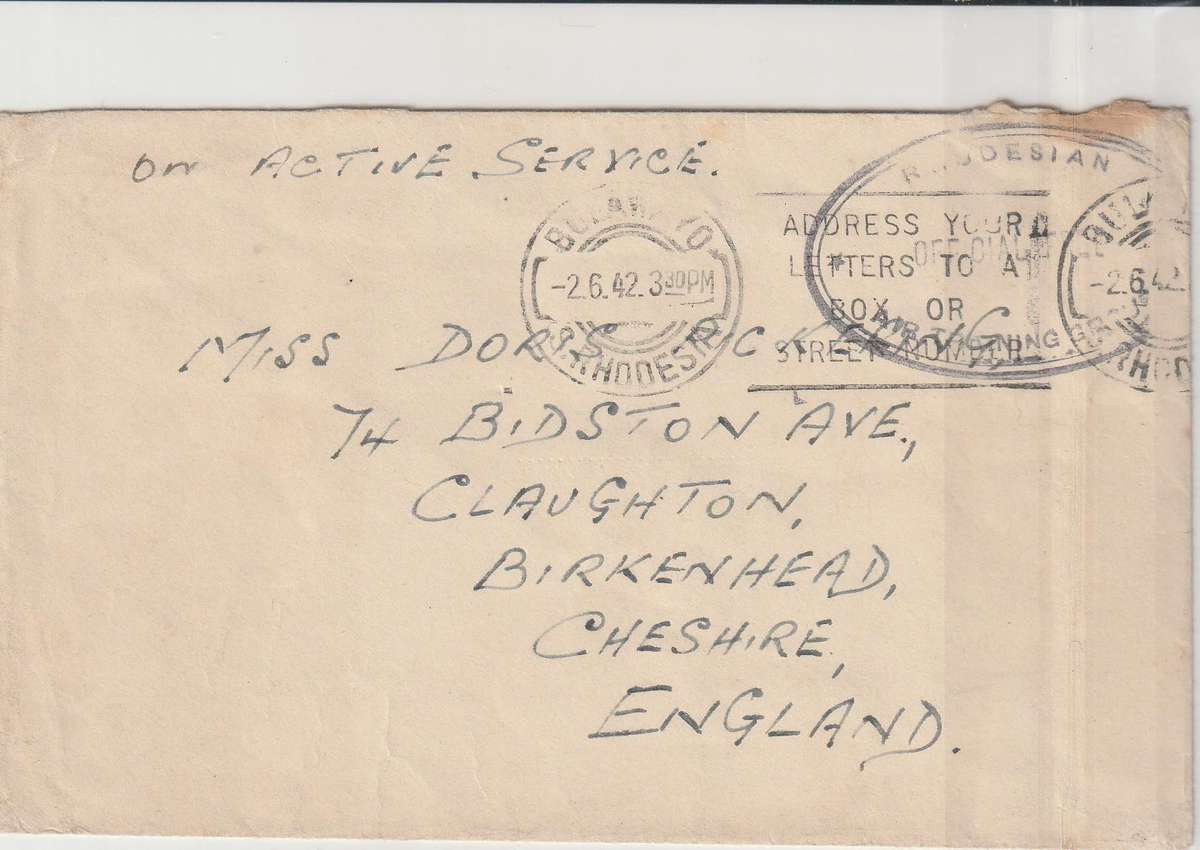 ON ACTIVE SERVICE.
BULAWAYO
-2.6.42. 3 30PM
S. RHODESIA
ADDRESS YOUR
LETTERS TO A
BOX OR
STREET NUMBER
RHODESIAN
OFFICIAL
AIR TRAINING GROUP
BUL
-2.6.42.
RHOD
MISS DORIS
74 BIDSTON AVE.,
CLAUGHTON,
BIRKENHEAD,
CHESHIRE,
ENGLAND.